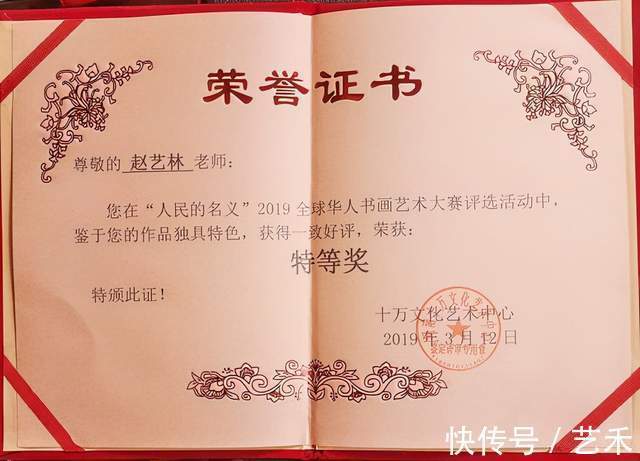 荣誉证书
尊敬的 赵艺林 老师:
您在“人民的名义”2019全球华人书画艺术大赛评选活动中,
鉴于您的作品独具特色,获得一致好评,荣获:
特等奖
特颁此证!
十万文化艺术中心
2019年3月12日
快传号/艺禾